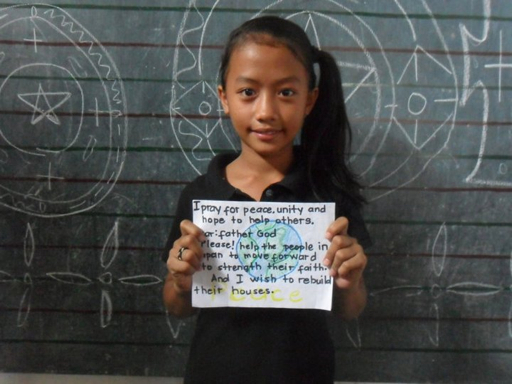 I pray for peace, unity and
hope to help others.
ar: father God
Please! help the people in
apan to move forward
to strength their faith.
And I wish to rebuild
their houses.
Peace